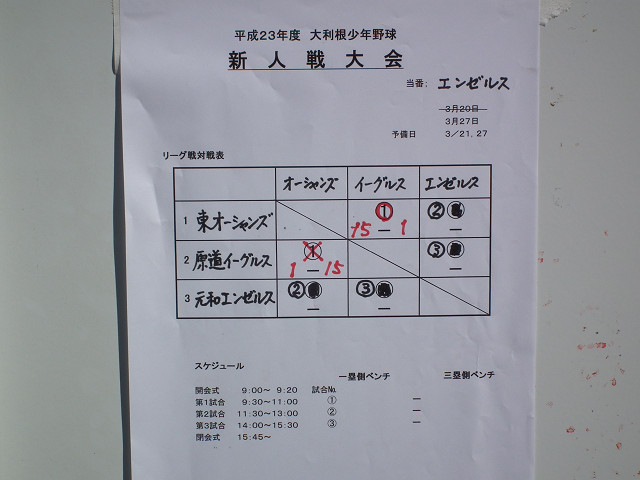 平成23年度 大利根少年野球
新人戦大会
当番: エンゼルス
3月20日
3月27日
予備日 3/21, 27
リーグ戦対戦表
オーシャンズ イーグルス エンゼルス
1 東オーシャンズ ① ②
15 ー 1 ー
2 原道イーグルス ① ③
1 ー 15 ー
3 元和エンゼルス ② ③
ー ー
スケジュール 一塁側ベンチ 三塁側ベンチ
開会式 9:00~ 9:20 試合No.
第1試合 9:30~11:00 ① ー
第2試合 11:30~13:00 ② ー
第3試合 14:00~15:30 ③ ー
閉会式 15:45~